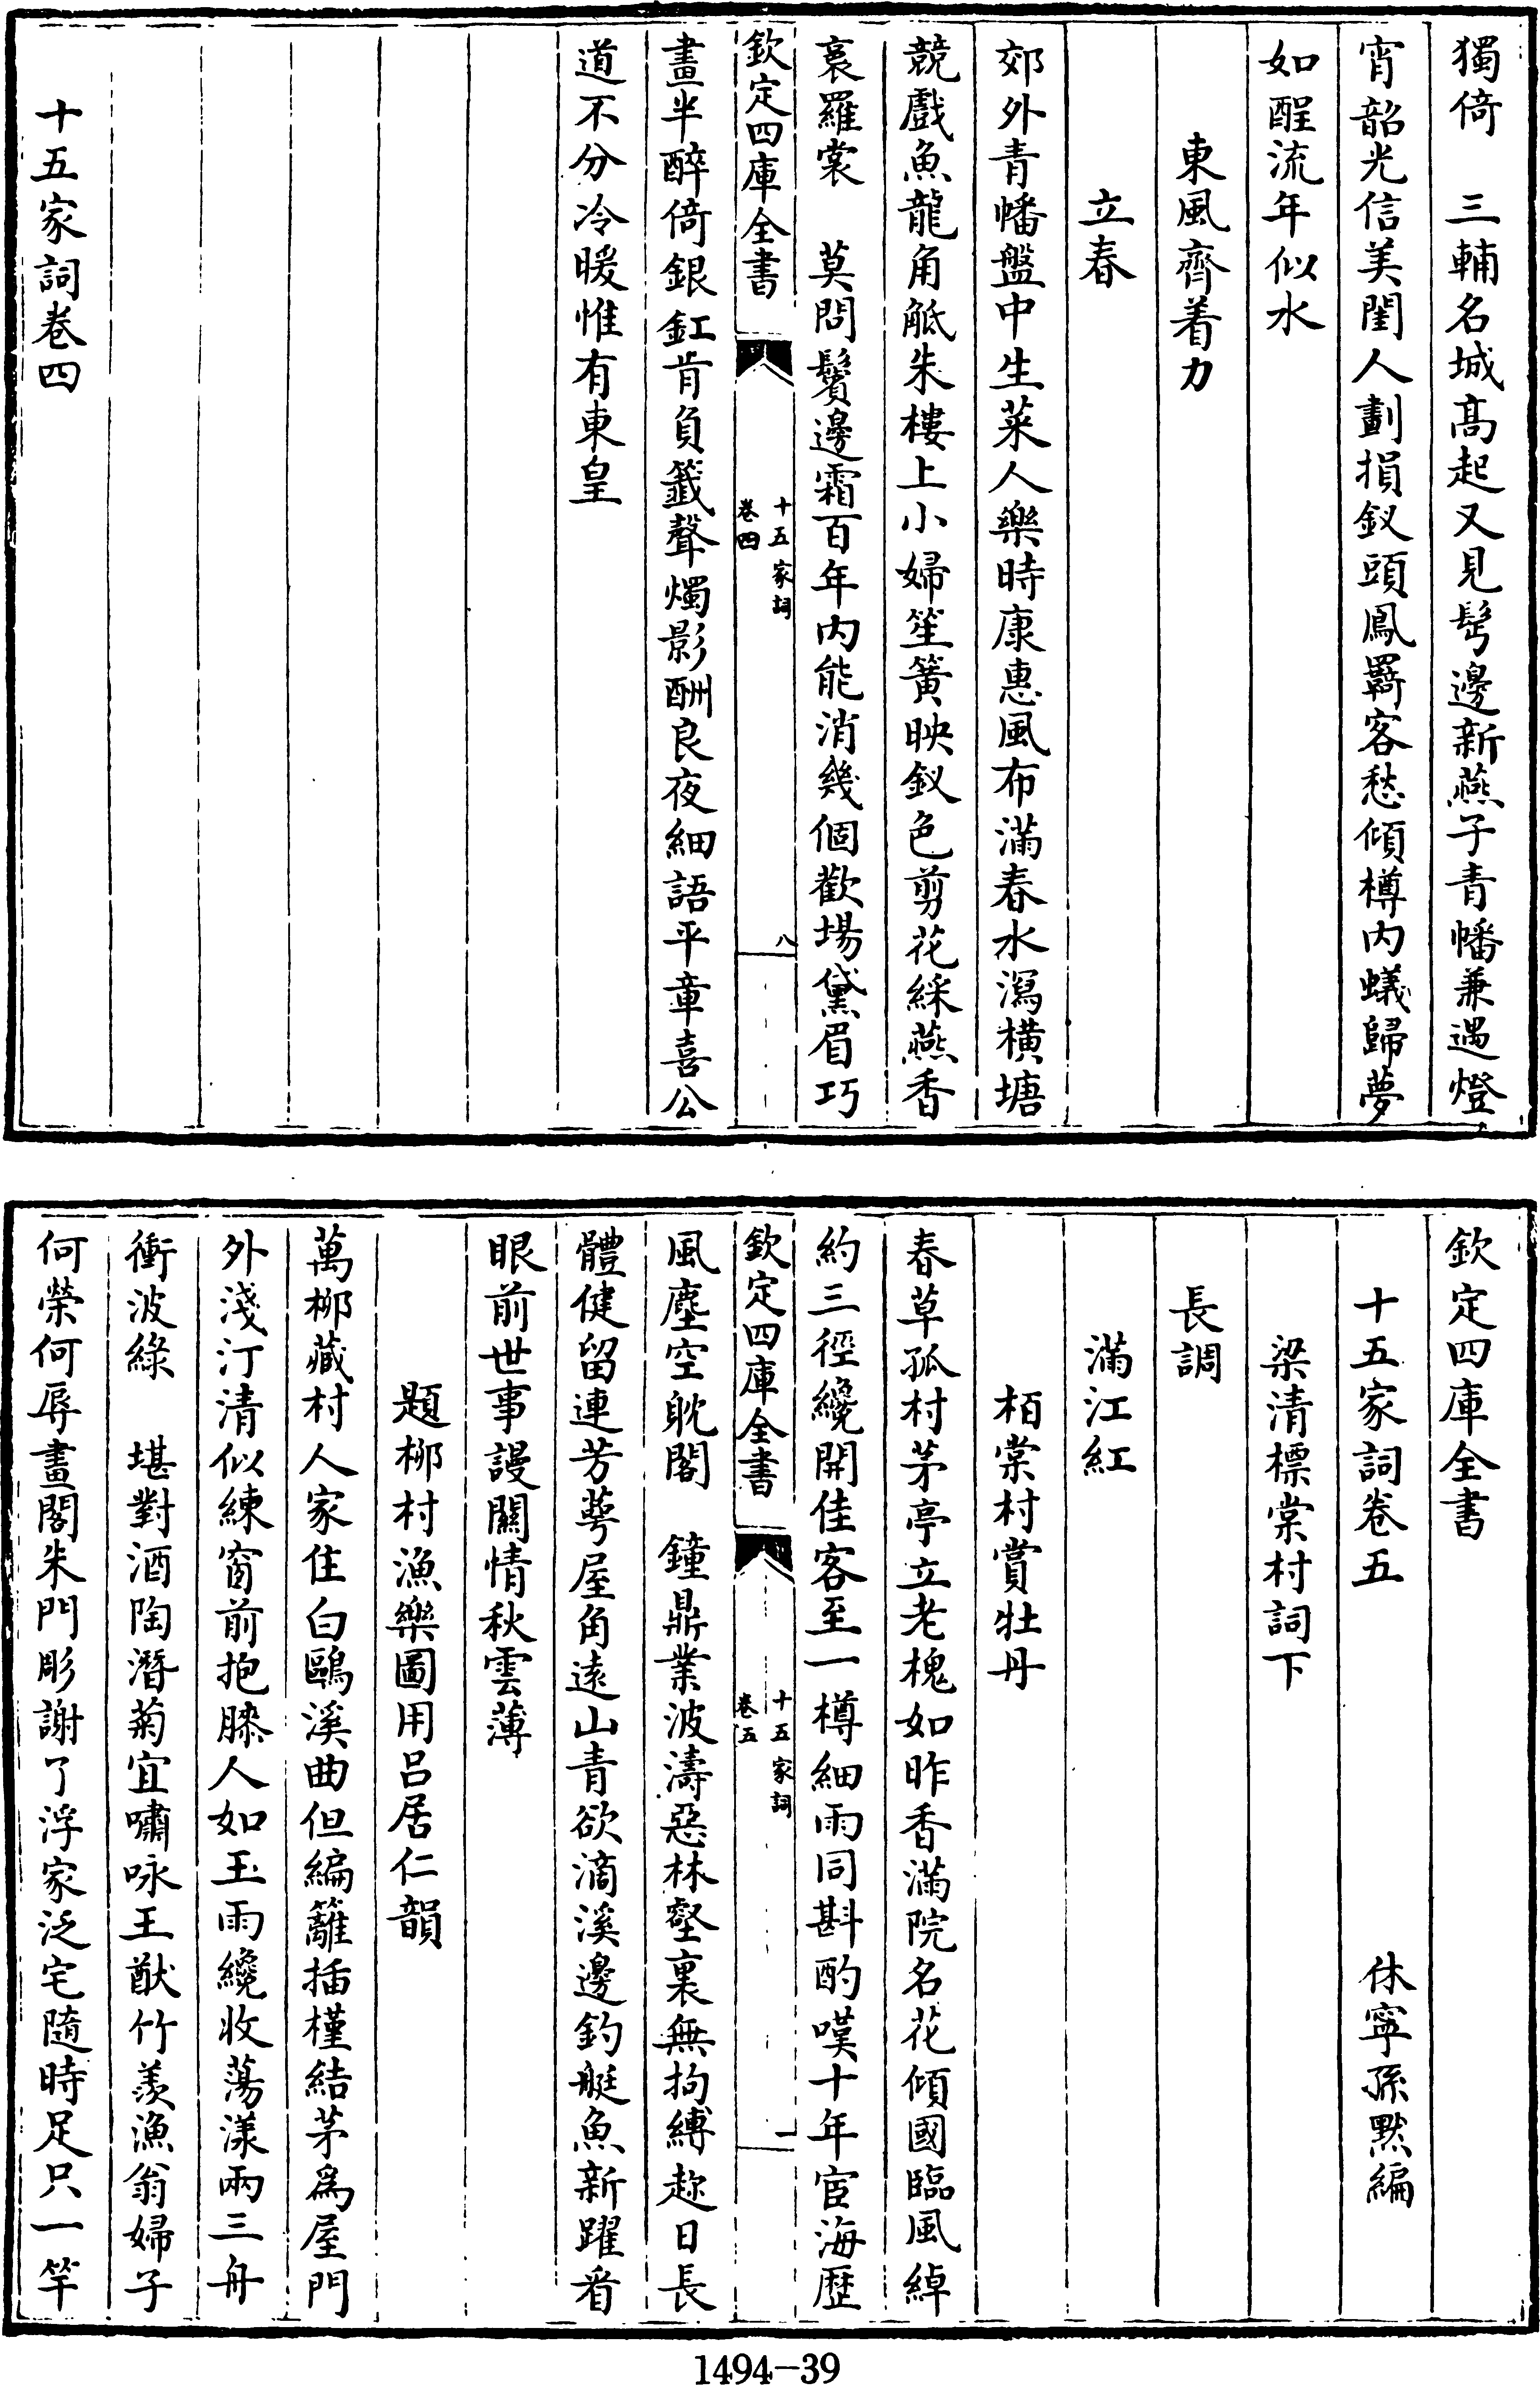 獨倚　三輔名城高起又見髩邊新燕子青幡兼遇燈
宵韶光信美閨人劃損釵頭鳳羇客愁傾樽内蟻歸夢
如酲流年似水
東風齊着力
立春
郊外青幡盤中生菜人樂時康惠風布滿春水瀉橫塘
競戲魚龍角觝朱樓上小婦笙簧映釵色剪花綵燕香
裛羅裳　莫問鬢邊霜百年内能消幾個歡場黛眉巧
欽定四庫全書
十五家詞
卷四
八
畫半醉倚銀釭肯負籤聲燭影酬良夜細語平章喜公
道不分冷暖惟有東皇
十五家詞卷四
欽定四庫全書
十五家詞卷五
休寧孫黙編
梁清標棠村詞下
長調
滿江紅
栢棠村賞牡丹
春草孤村茅亭立老槐如昨香滿院名花傾國臨風綽
約三徑纔開佳客至一樽細雨同斟酌嘆十年宦海歴
欽定四庫全書
十五家詞
卷五
一
風塵空躭閣　鐘鼎業波濤惡林壑裏無拘縛趂日長
體健留連芳萼屋角遠山青欲滴溪邊釣艇魚新躍看
眼前世事謾闗情秋雲薄
題柳村漁樂圖用吕居仁韻
萬柳藏村人家住白鷗溪曲但編籬插槿結茅爲屋門
外淺汀清似練窗前抱膝人如玉雨纔收蕩漾兩三舟
衝波綠　堪對酒陶潛菊宜嘯咏王猷竹羨漁翁婦子
何榮何辱畫閣朱門彫謝了浮家泛宅隨時足只一竿
1494-39